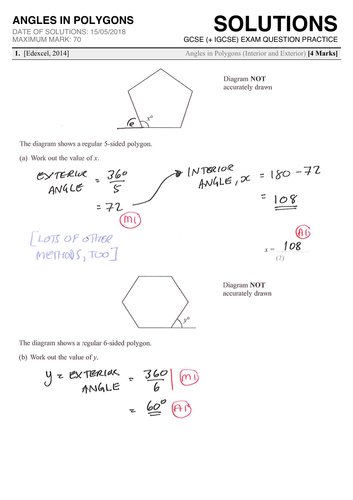 ANGLES IN POLYGONS
SOLUTIONS
DATE OF SOLUTIONS: 15/05/2018
MAXIMUM MARK: 70
GCSE (+ IGCSE) EXAM QUESTION PRACTICE
1. [Edexcel, 2014]
Angles in Polygons (Interior and Exterior) [4 Marks]
Diagram NOT
accurately drawn
x°
The diagram shows a regular 5-sided polygon.
(a) Work out the value of x.
EXTERIOR ANGLE = 360/5
= 72
M1
INTERIOR ANGLE, x = 180 - 72
= 108
[LOTS OF OTHER
METHODS, TOO]
A1
x = 108
(2)
Diagram NOT
accurately drawn
y°
The diagram shows a regular 6-sided polygon.
(b) Work out the value of y.
y = EXTERIOR ANGLE = 360/6 M1
= 60° A1